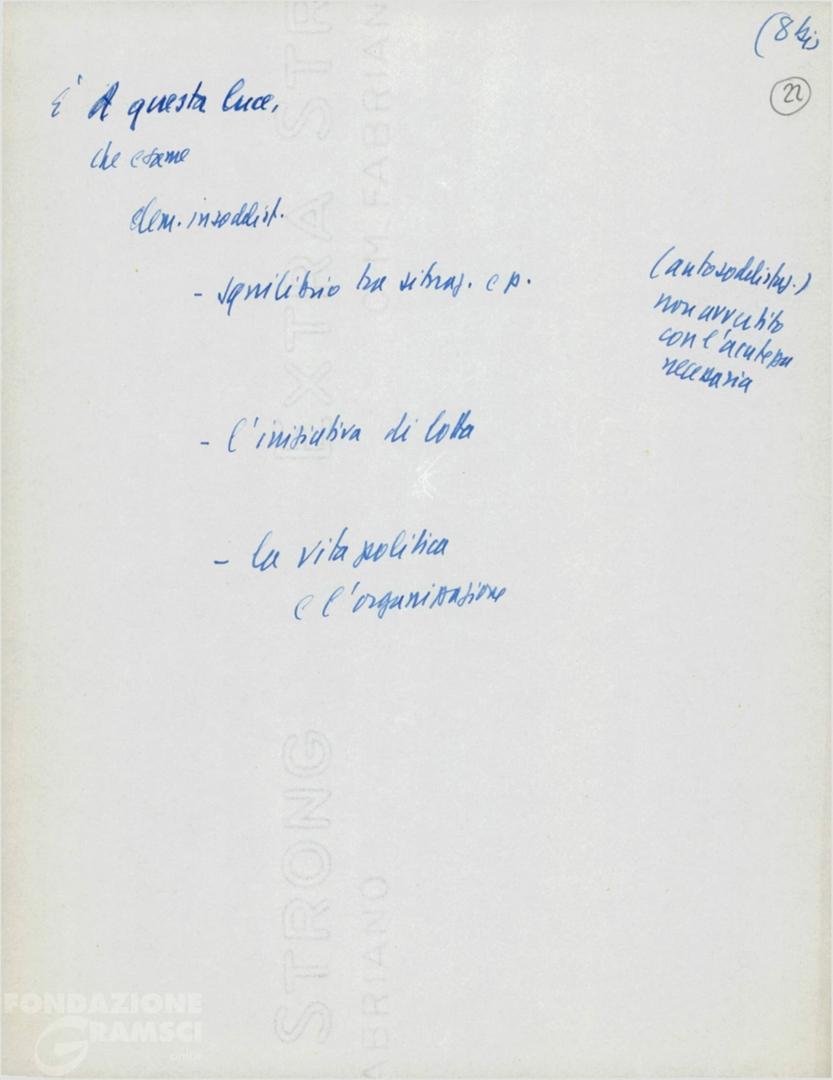 (8 bis
22
È A questa luce,
che esame
elem. insoddisf.
- squilibrio tra situaz. e p.
(autosoddisfaz.)
non avvertito
con l'acutezza
necessaria
- l'iniziativa di lotta
- la vita politica
e l'organizzazione
EXTRA STR
C.M. FABRIAN
STRONG
ABRIANO
FONDAZIONE
GRAMSCI
onlus